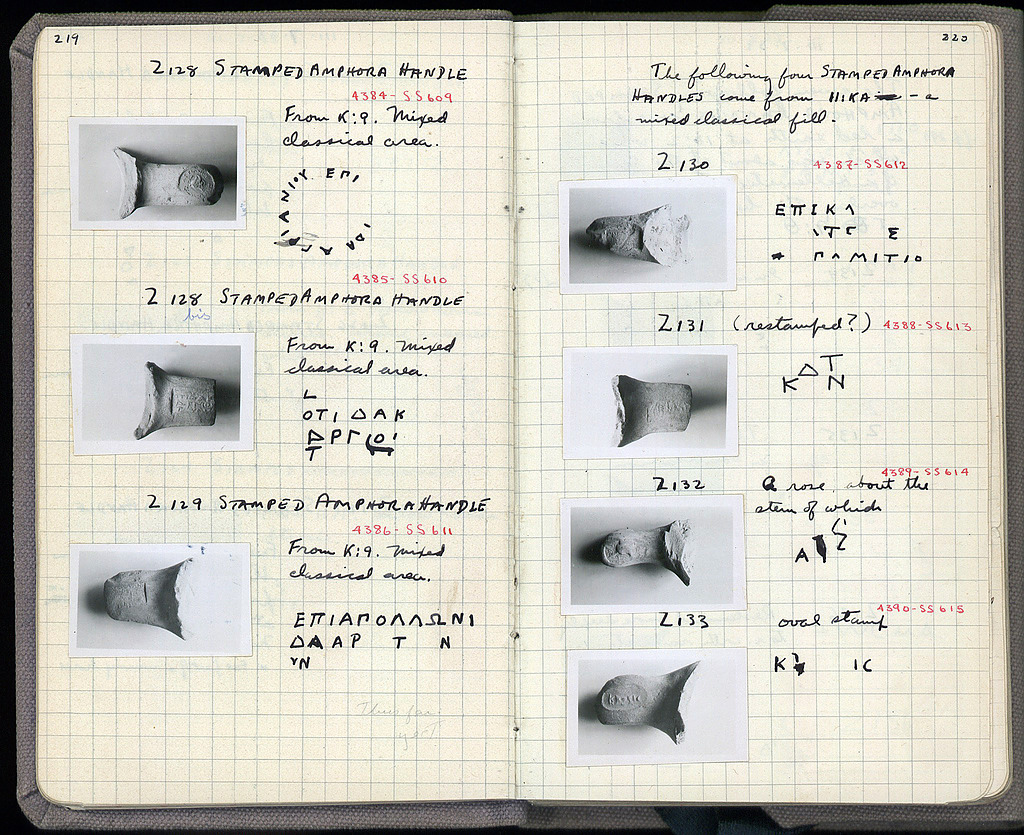 219
Z 128 STAMPED AMPHORA HANDLE
4384-SS609
From K:9. Mixed
classical area.
ΕΠΙ
Z 128 STAMPED AMPHORA HANDLE
bis
4385-SS610
From K:9. Mixed
classical area.
L
ΟΤΙ ΔΑΚ
Z 129 STAMPED AMPHORA HANDLE
4386-SS611
From K:9. Mixed
classical area.
ΕΠΙΑΠΟΛΛΩΝΙ
ΔΑΑΡ Τ Ν
ΥΝ
Thus far
220
The following four STAMPED AMPHORA
HANDLES come from - a
mixed classical fill.
Z 130
4387-SS612
ΕΠΙΚΛ
Ε
ΠΑΜΙΤΙΟ
Z 131 (restamped?) 4388-SS613
Κ Δ Τ Ν
Z 132
4389-SS614
A rose, about the
stem of which
Α
Z 133
4390-SS615
oval stamp
Κ ΙC